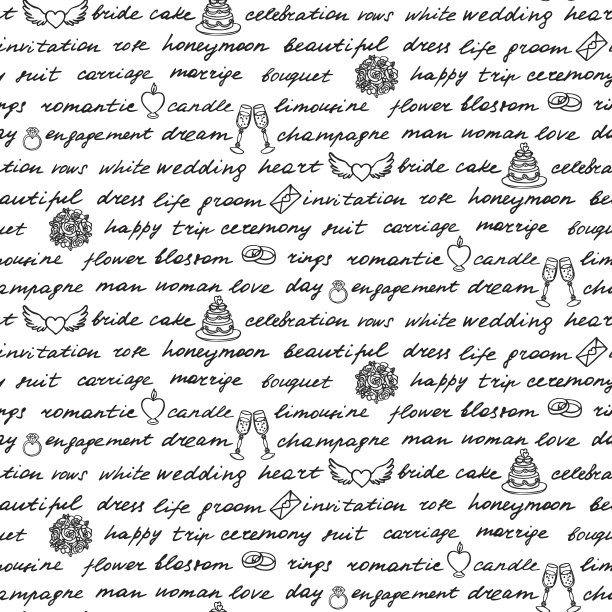 t bride cake celebration vows white wedding hear
invitation rose honeymoon beautiful dress life groom
y suit carriage marrige bouquet happy trip ceremony
ngs romantic candle limousine flower blossom rin
ay engagement dream champagne man woman love da
tion vows white wedding heart bride cake celebra
autiful dress life groom invitation rose honeymoon be
uet happy trip ceremony suit carriage marrige bouqu
ousine flower blossom rings romantic candle lim
ampagne man woman love day engagement dream cha
t bride cake celebration vows white wedding hear
invitation rose honeymoon beautiful dress life groom
y suit carriage marrige bouquet happy trip ceremony
ngs romantic candle limousine flower blossom rin
ay engagement dream champagne man woman love da
tion vows white wedding heart bride cake celebra
autiful dress life groom invitation rose honeymoon be
uet happy trip ceremony suit carriage marrige bouqu
ousine flower blossom rings romantic candle lim
ampagne man woman love day engagement dream cha